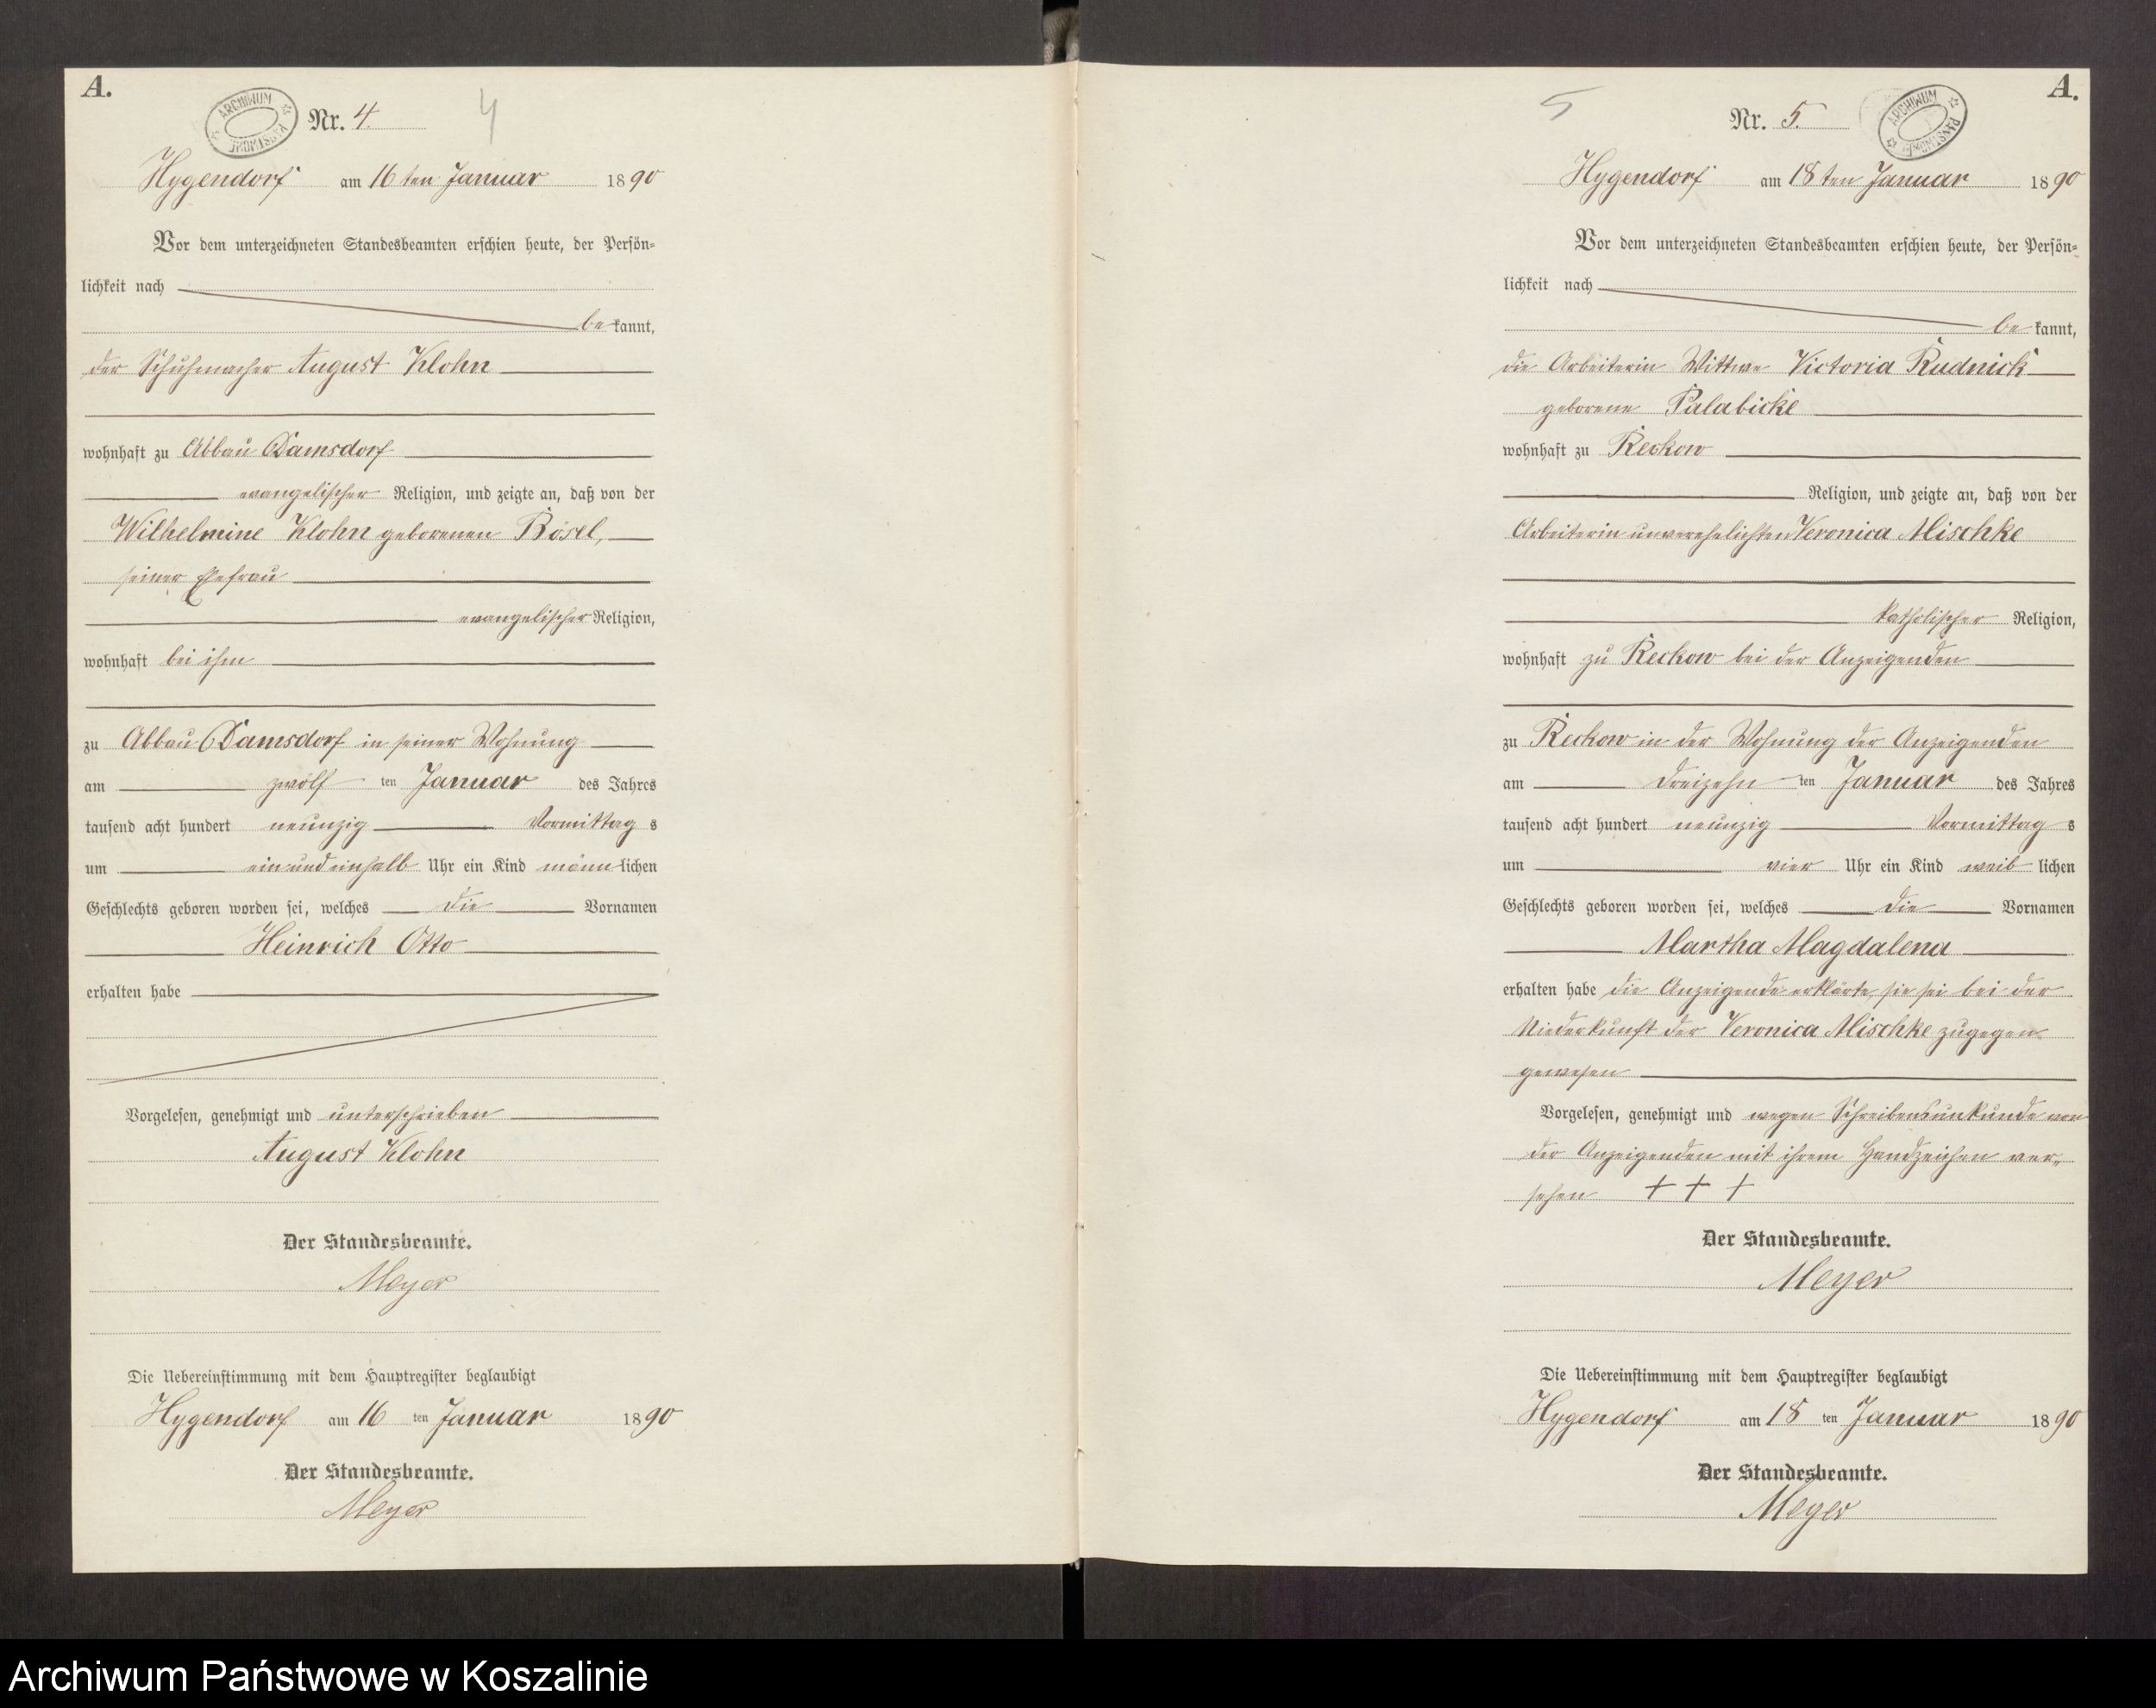 A.
ARCHIWUM PAŃSTWOWE
Nr. 4.
4
Hygendorf am 16ten Januar 1890
Vor dem unterzeichneten Standesbeamten erschien heute, der Persön=
lichkeit nach
bekannt,
der Schuhmacher August Klohn
wohnhaft zu Abbau Damsdorf
evangelischer Religion, und zeigte an, daß von der
Wilhelmine Klohn geborenen Bösel,
seiner Ehefrau
evangelischer Religion,
wohnhaft bei ihm
zu Abbau Damsdorf in seiner Wohnung
am zwölf ten Januar des Jahres
tausend acht hundert neunzig Vormittags
um ein und einhalb Uhr ein Kind männlichen
Geschlechts geboren worden sei, welches die Vornamen
Heinrich Otto
erhalten habe
Vorgelesen, genehmigt und unterschrieben
August Klohn
Der Standesbeamte.
Meyer
Die Uebereinstimmung mit dem Hauptregister beglaubigt
Hygendorf am 16 ten Januar 1890
Der Standesbeamte.
Meyer
A.
5
Nr. 5.
ARCHIWUM PAŃSTWOWE
Hygendorf am 18ten Januar 1890
Vor dem unterzeichneten Standesbeamten erschien heute, der Persön=
lichkeit nach
bekannt,
die Arbeiterin Wittwe Victoria Rudnick
geborene Palabicke
wohnhaft zu Reckow
Religion, und zeigte an, daß von der
Arbeiterin unverehelichten Veronica Mischke
katholischer Religion,
wohnhaft zu Reckow bei der Anzeigenden
zu Reckow in der Wohnung der Anzeigenden
am dreizehn ten Januar des Jahres
tausend acht hundert neunzig Vormittags
um vier Uhr ein Kind weiblichen
Geschlechts geboren worden sei, welches die Vornamen
Martha Magdalena
erhalten habe die Anzeigende erklärte, sie sei bei der
Niederkunft der Veronica Mischke zugegen
gewesen
Vorgelesen, genehmigt und wegen Schreibensunkunde von
der Anzeigenden mit ihrem Handzeichen ver„
sehen + + +
Der Standesbeamte.
Meyer
Die Uebereinstimmung mit dem Hauptregister beglaubigt
Hygendorf am 18 ten Januar 1890
Der Standesbeamte.
Meyer
Archiwum Państwowe w Koszalinie